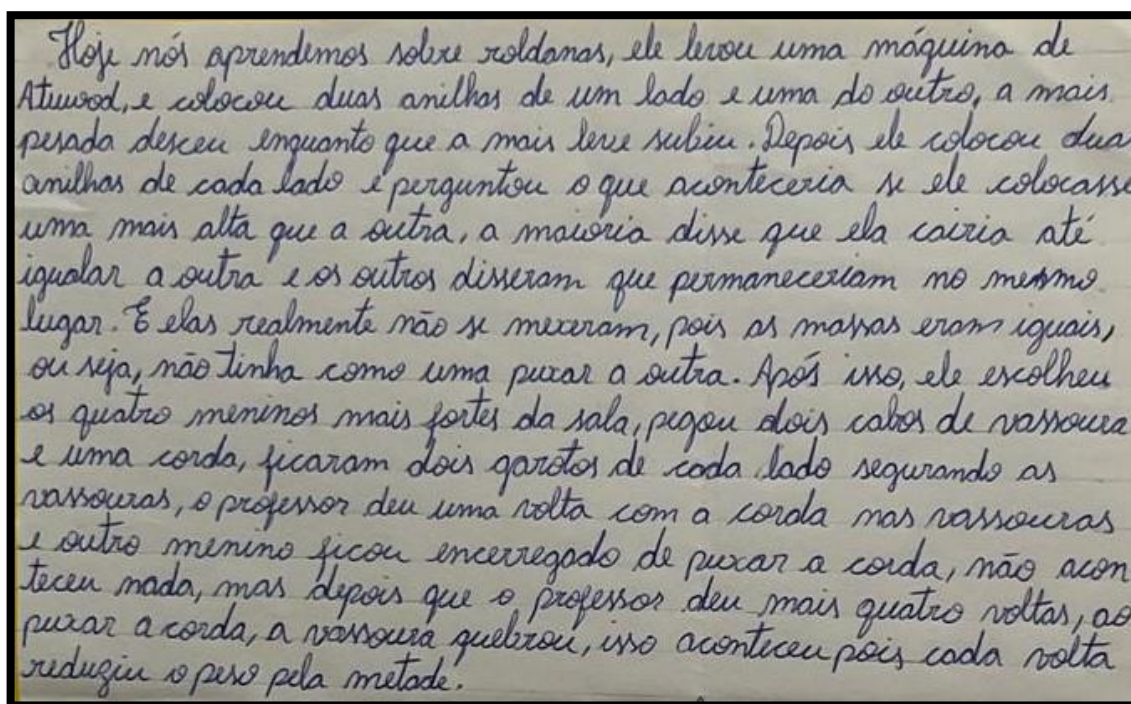 Hoje nós aprendemos sobre roldanas, ele levou uma máquina de
Atwood, e colocou duas anilhas de um lado e uma do outro, a mais
pesada desceu enquanto que a mais leve subiu. Depois ele colocou dua
anilhas de cada lado e perguntou o que aconteceria se ele colocasse
uma mais alta que a outra, a maioria disse que ela cairia até
igualar a outra e os outros disseram que permaneceriam no mesmo
lugar. E elas realmente não se mexeram, pois as massas eram iguais,
ou seja, não tinha como uma puxar a outra. Após isso, ele escolheu
os quatro meninos mais fortes da sala, pegou dois cabos de vassoura
e uma corda, ficaram dois garotos de cada lado segurando as
vassouras, o professor deu uma volta com a corda nas vassouras
e outro menino ficou encerregado de puxar a corda, não acon
teceu nada, mas depois que o professor deu mais quatro voltas, ao
puxar a corda, a vassoura quebrou, isso aconteceu pois cada volta
reduziu o peso pela metade.